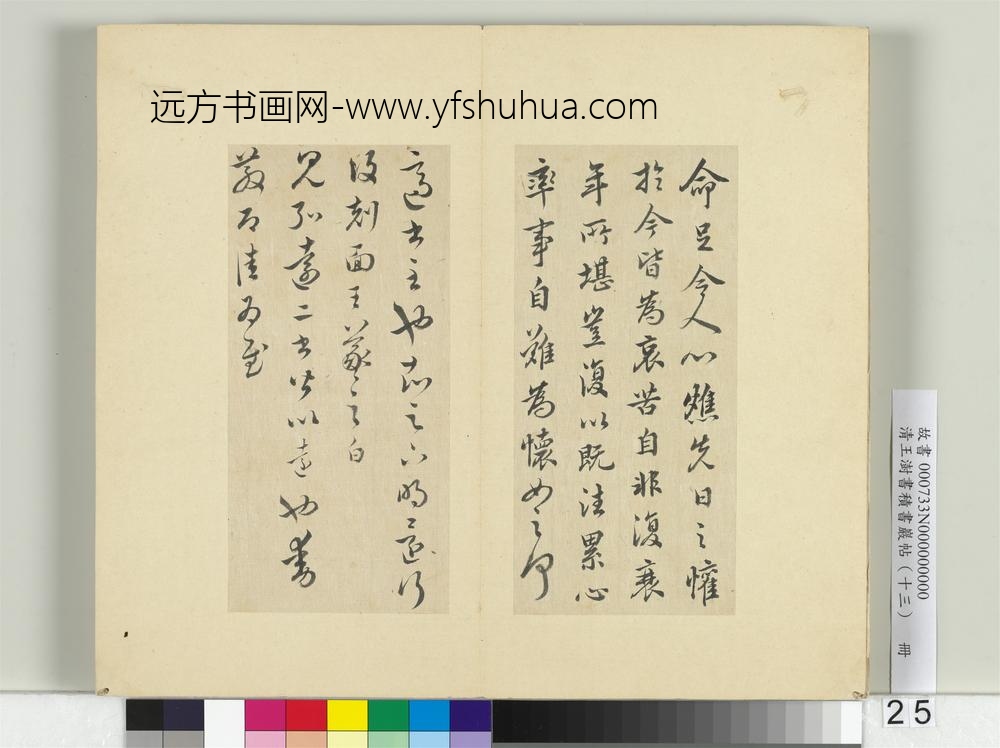 远方书画网-www.yfshuhua.com
命旦今人心燋先日之懽
於今皆為哀苦自非復衰
年所堪豈復以既往累心
率事自難為懷如之何
適書至也知之小明還行
復刻面王羲之白
見弘遠二書皆以達也
為
故書 000733N000000000
清王澍書積書巖帖（十三） 冊
25